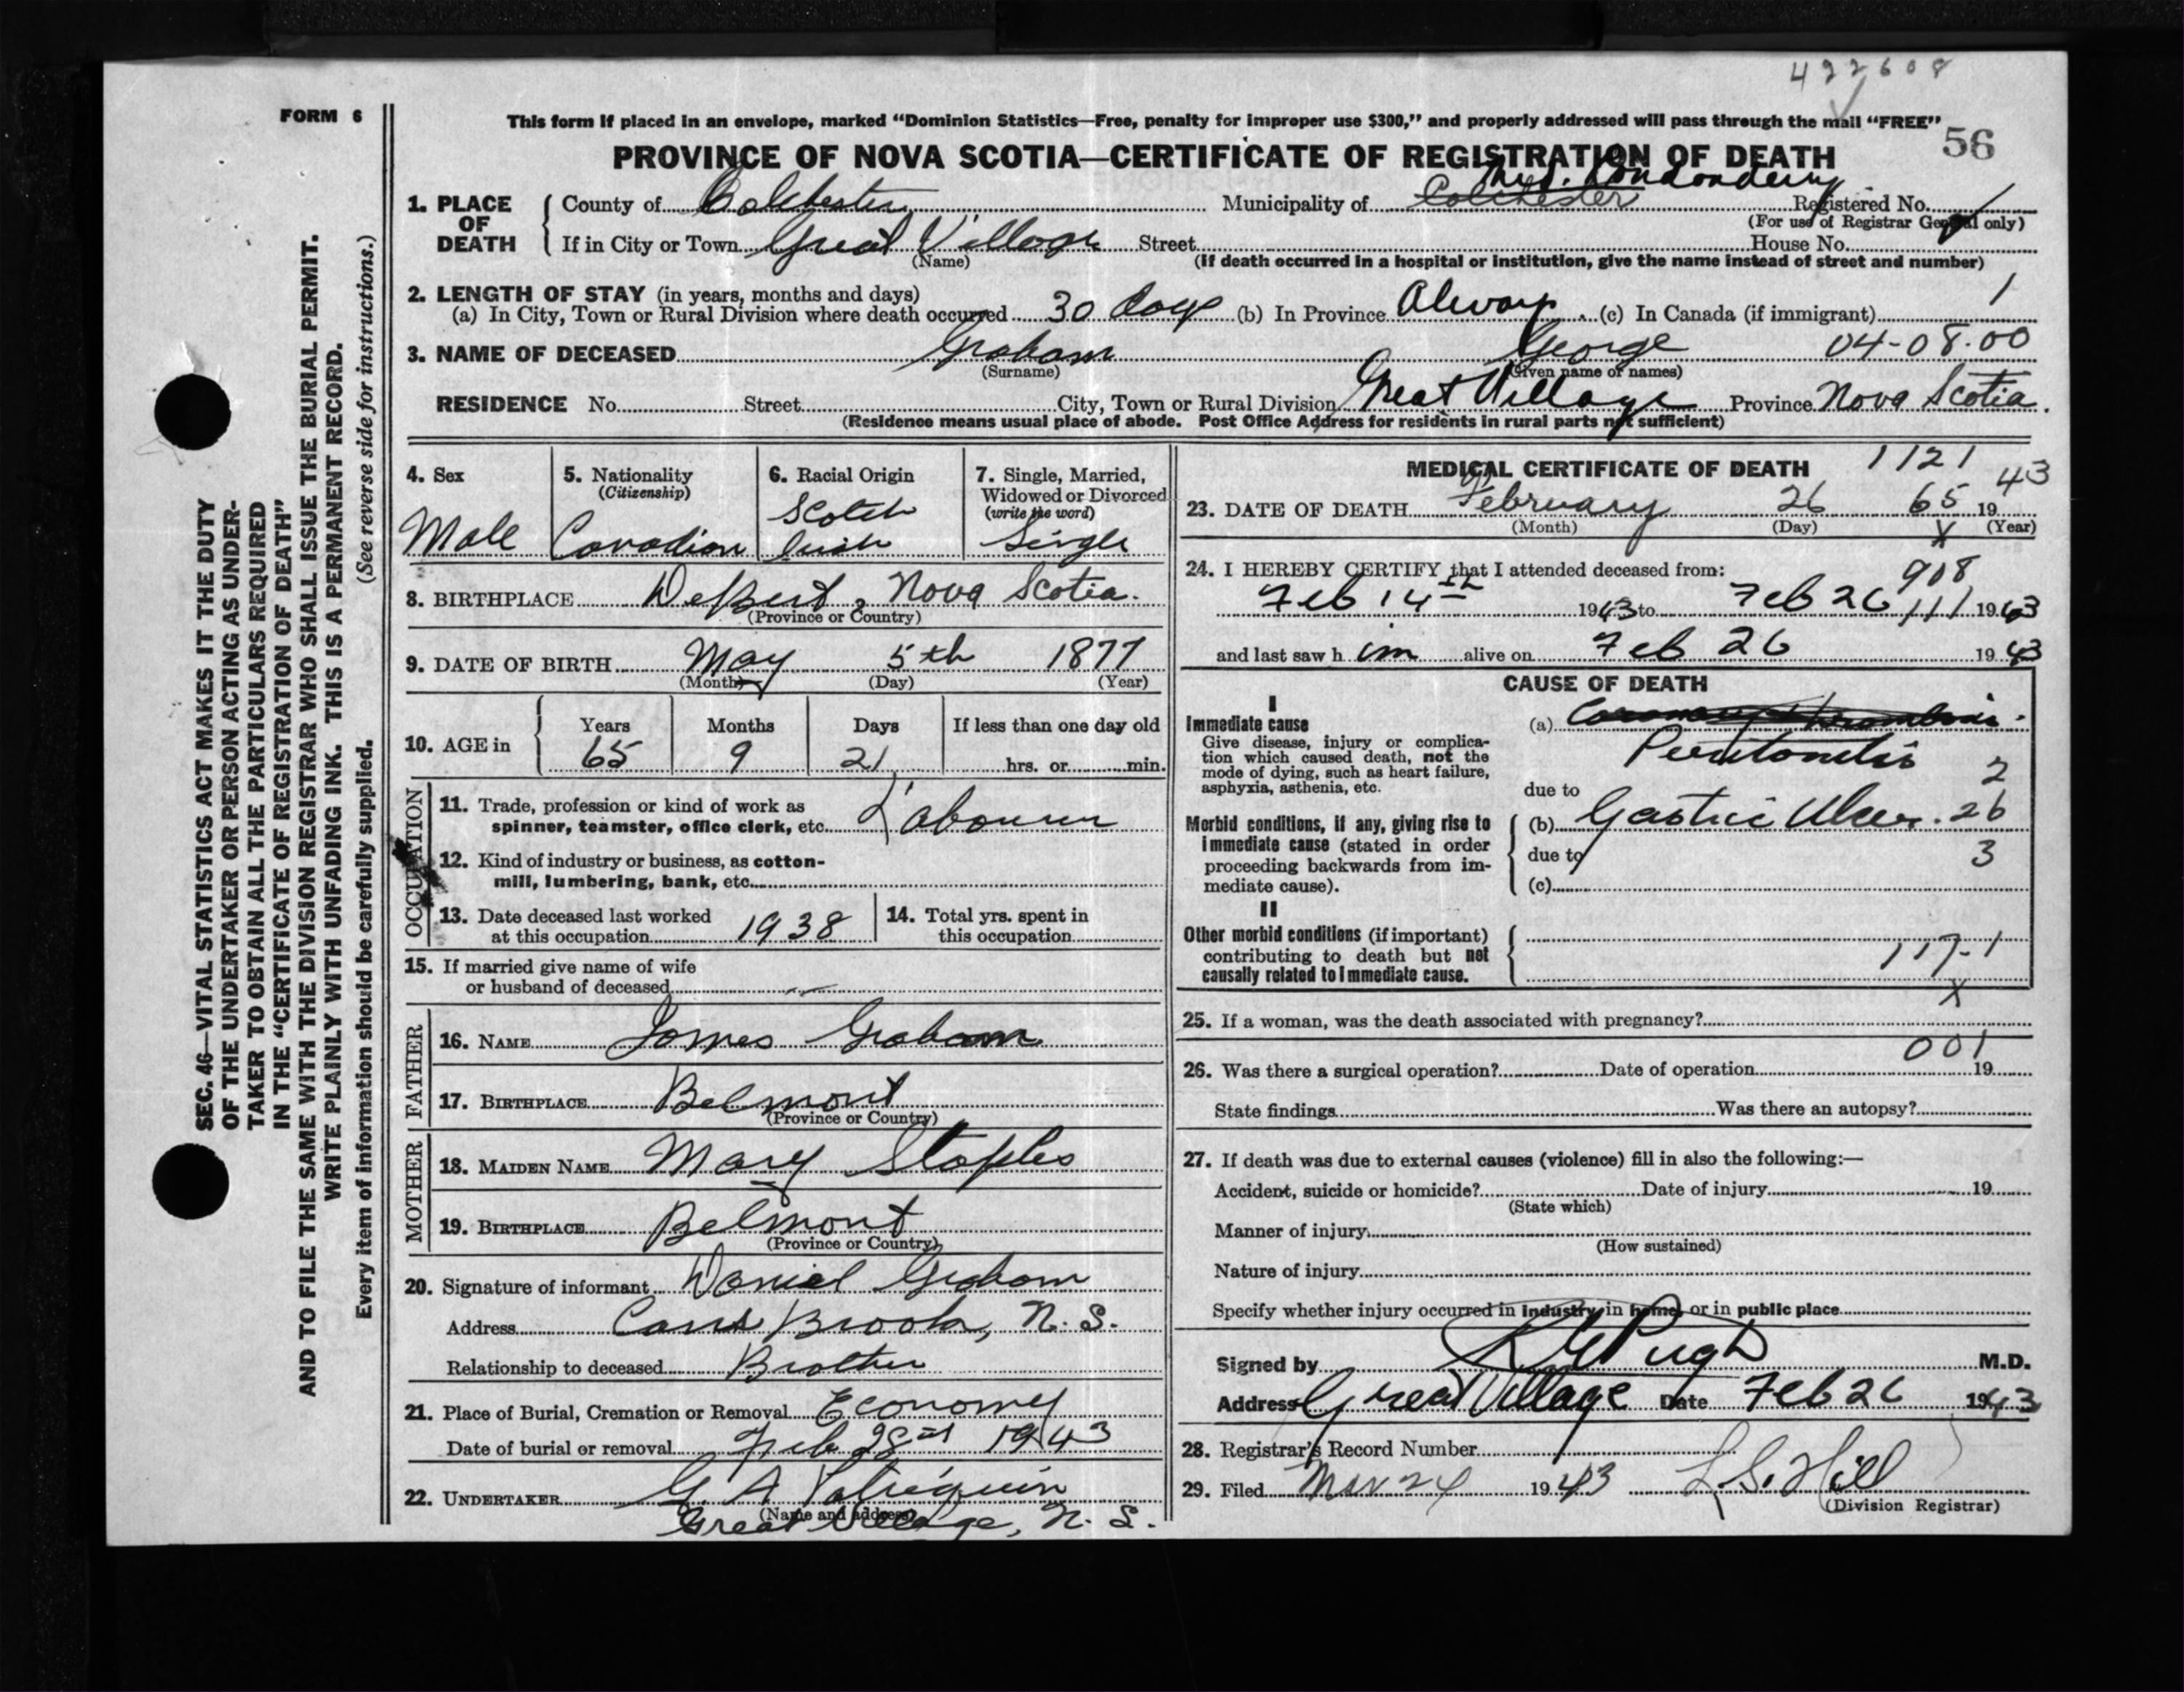 422608
FORM 6
This form if placed in an envelope, marked “Dominion Statistics—Free, penalty for improper use $300,” and properly addressed will pass through the mail “FREE”
56
PROVINCE OF NOVA SCOTIA—CERTIFICATE OF REGISTRATION OF DEATH
1. PLACE OF DEATH
County of Colchester Municipality of Colchester Londonderry Registered No.
(For use of Registrar General only)
If in City or Town Great Village Street House No.
(Name) (If death occurred in a hospital or institution, give the name instead of street and number)
2. LENGTH OF STAY (in years, months and days)
(a) In City, Town or Rural Division where death occurred 30 days (b) In Province Always. (c) In Canada (if immigrant) 1
3. NAME OF DECEASED Graham George 04-08-00
(Surname) (Given name or names)
RESIDENCE No. Street City, Town or Rural Division Great Village Province Nova Scotia.
(Residence means usual place of abode. Post Office Address for residents in rural parts not sufficient)
4. Sex
Male
5. Nationality
(Citizenship)
Canadian
6. Racial Origin
Scotch
Irish
7. Single, Married,
Widowed or Divorced
(write the word)
Single
8. BIRTHPLACE Debert, Nova Scotia.
(Province or Country)
9. DATE OF BIRTH May 5th 1877
(Month) (Day) (Year)
10. AGE in
Years Months Days If less than one day old
65 9 21 hrs. or min.
OCCUPATION
11. Trade, profession or kind of work as
spinner, teamster, office clerk, etc. Labourer
12. Kind of industry or business, as cotton-
mill, lumbering, bank, etc.
13. Date deceased last worked
at this occupation 1938
14. Total yrs. spent in
this occupation
15. If married give name of wife
or husband of deceased
FATHER
16. NAME James Graham
17. BIRTHPLACE Belmont
(Province or Country)
MOTHER
18. MAIDEN NAME Mary Staples
19. BIRTHPLACE Belmont
(Province or Country)
20. Signature of informant Daniel Graham
Address Brook, N. S.
Relationship to deceased Brother
21. Place of Burial, Cremation or Removal Economy
Date of burial or removal Feb 28 1943
22. UNDERTAKER G. A Patriquin
(Name and address)
Great Village, N. S.
MEDICAL CERTIFICATE OF DEATH 1121
23. DATE OF DEATH February 26 65 19 43
(Month) (Day) X (Year)
24. I HEREBY CERTIFY that I attended deceased from:
908
Feb 14th 1943 to Feb 26 111 1943
and last saw him alive on Feb 26 1943
CAUSE OF DEATH
I
Immediate cause
Give disease, injury or complica-
tion which caused death, not the
mode of dying, such as heart failure,
asphyxia, asthenia, etc.
(a) Coronary thrombosis.
Peritonitis
2
due to
Morbid conditions, if any, giving rise to
immediate cause (stated in order
proceeding backwards from im-
mediate cause).
(b) Gastric Ulcer. 26
due to 3
(c)
II
Other morbid conditions (if important)
contributing to death but not
causally related to immediate cause.
117-1
X
25. If a woman, was the death associated with pregnancy?
001
26. Was there a surgical operation? Date of operation 19
State findings Was there an autopsy?
27. If death was due to external causes (violence) fill in also the following:—
Accident, suicide or homicide? Date of injury 19
(State which)
Manner of injury
(How sustained)
Nature of injury
Specify whether injury occurred in industry, in home, or in public place
Signed by Pugh M.D.
Address Great Village Date Feb 26 1943
28. Registrar's Record Number
29. Filed Mar 24 1943 L. S. Hill
(Division Registrar)
SEC. 46—VITAL STATISTICS ACT MAKES IT THE DUTY
OF THE UNDERTAKER OR PERSON ACTING AS UNDER-
TAKER TO OBTAIN ALL THE PARTICULARS REQUIRED
IN THE “CERTIFICATE OF REGISTRATION OF DEATH”
AND TO FILE THE SAME WITH THE DIVISION REGISTRAR WHO SHALL ISSUE THE BURIAL PERMIT.
WRITE PLAINLY WITH UNFADING INK. THIS IS A PERMANENT RECORD.
Every item of information should be carefully supplied. (See reverse side for instructions.)